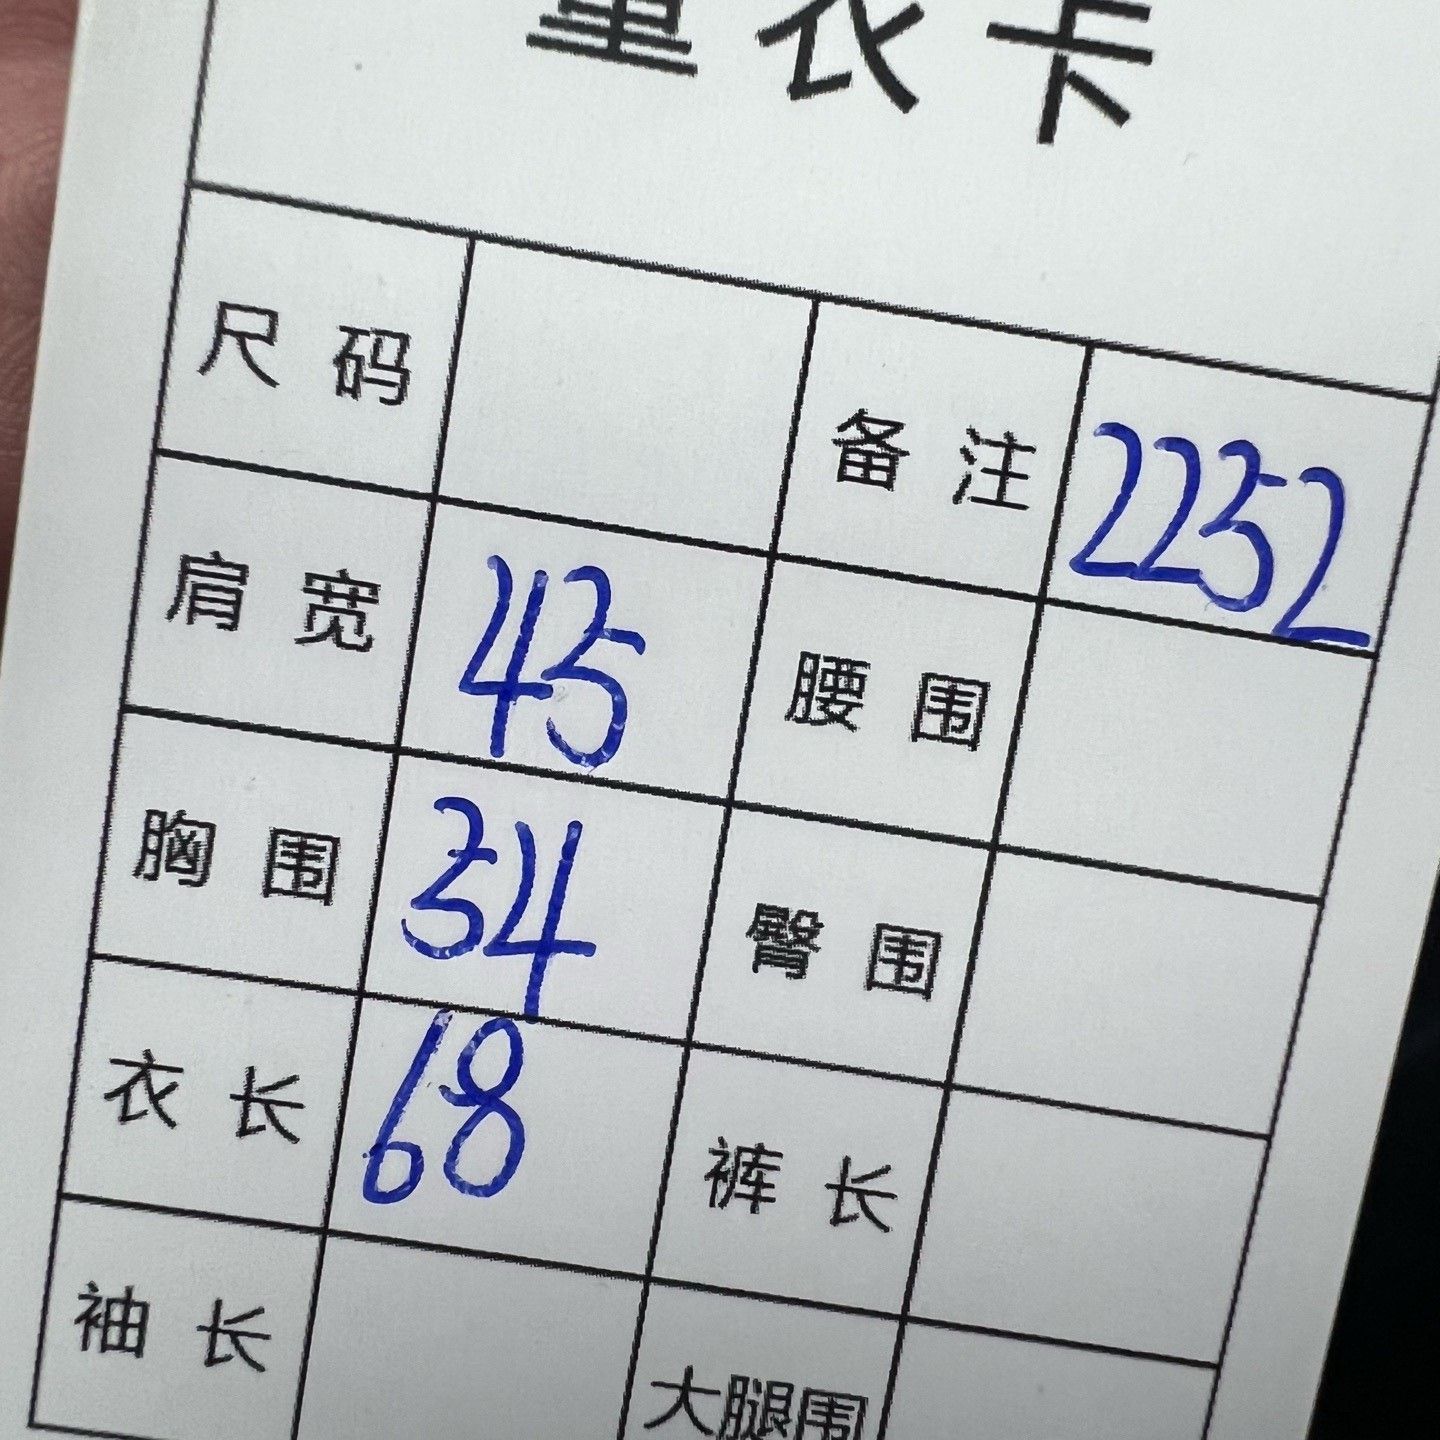 量衣卡
尺码 备注 2252
肩宽 45 腰围
胸围 54 臀围
衣长 68 裤长
袖长 大腿围